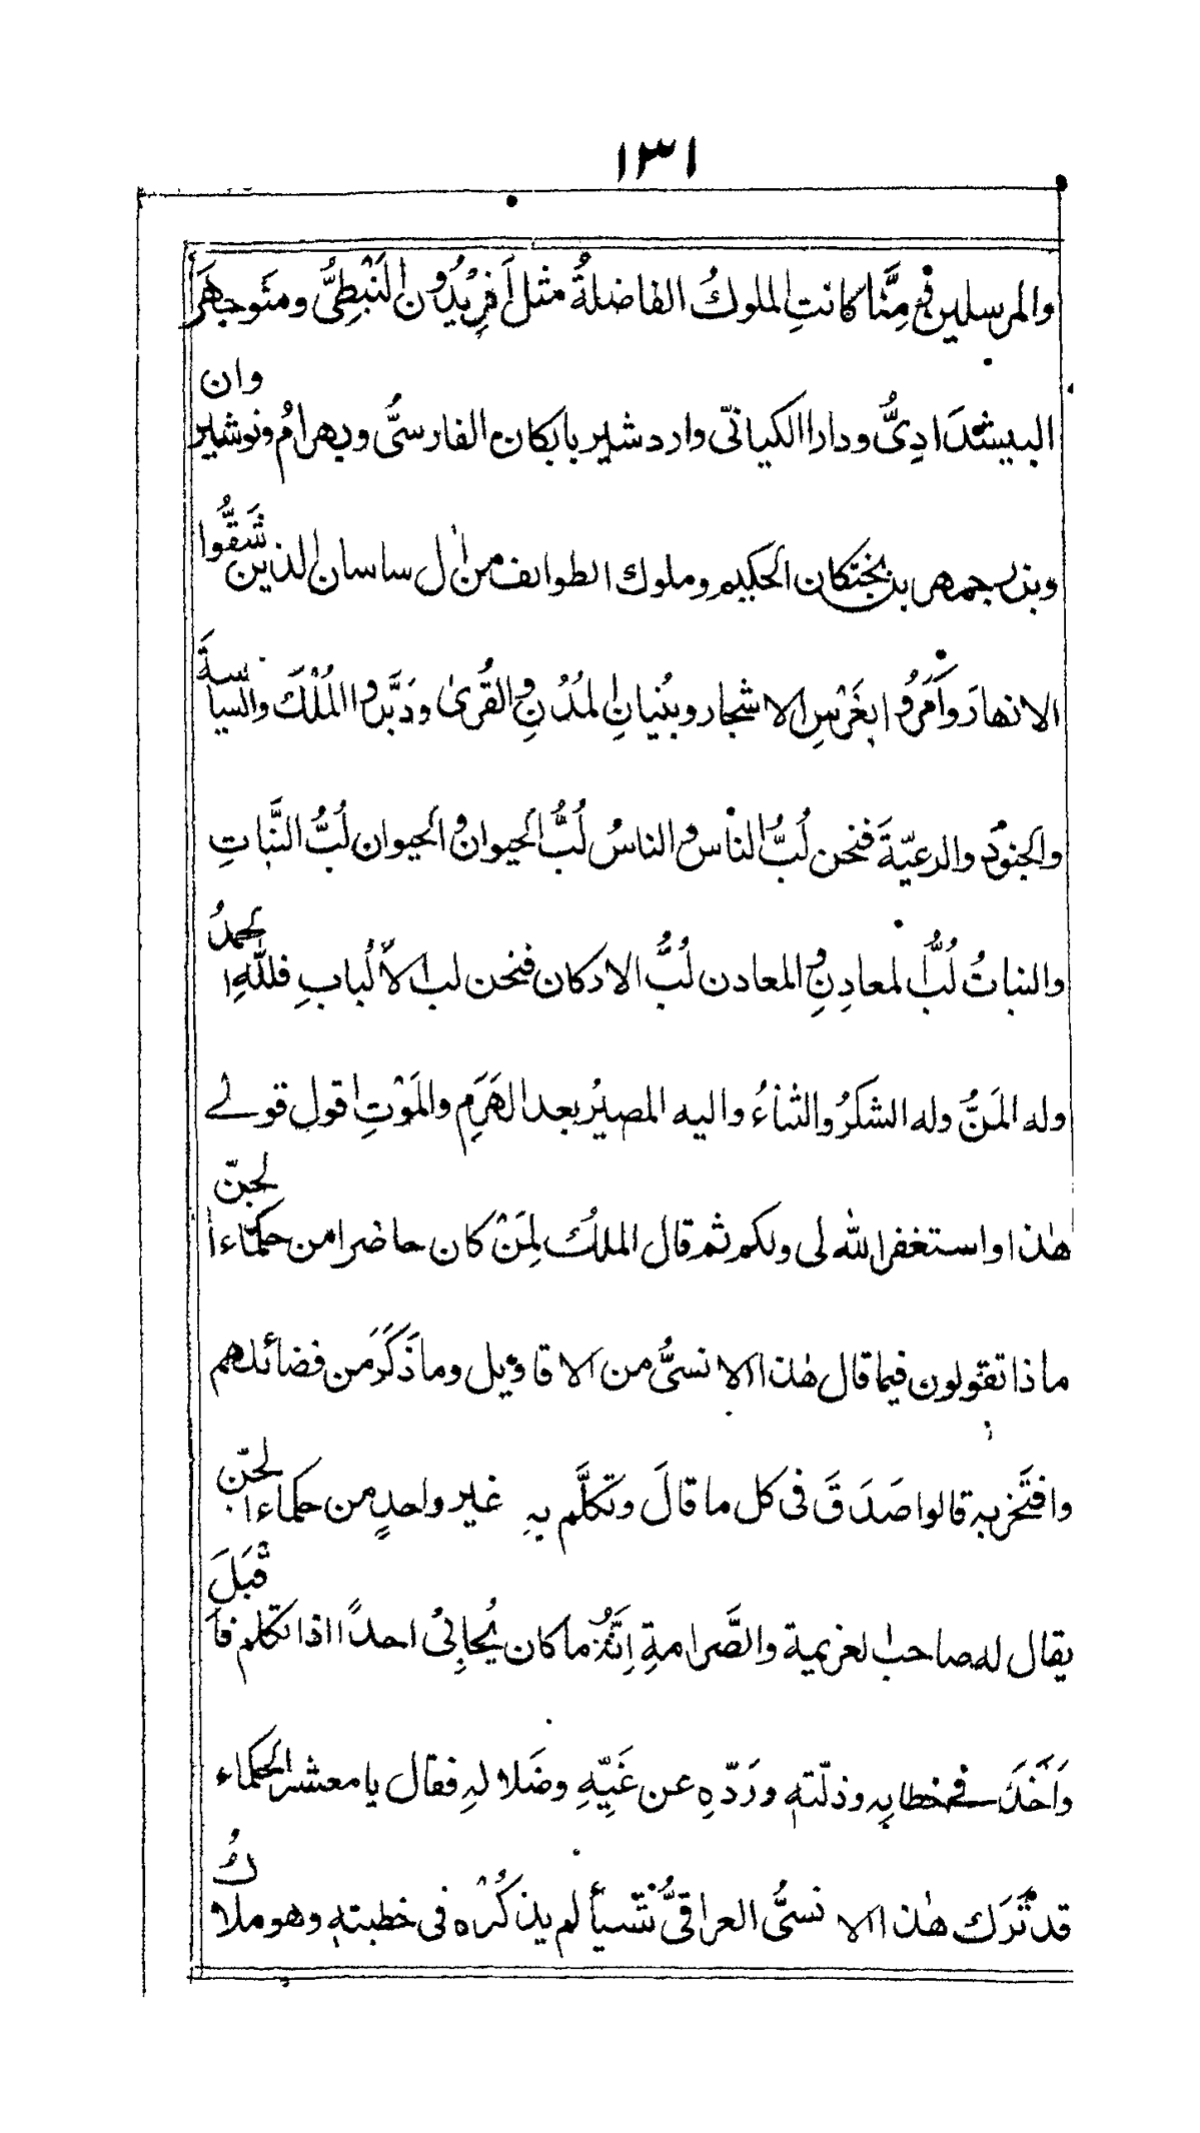 ١٣١
والمرسلين ومِنَّا كانتِ الملوكُ الفاضلةُ مثل اَفرِيْدُون النَبْطِىُّ ومنَوجهرَ
البيشدَادِىُّ ودارا الكيانّى واردشير بابكان الفارسىُّ وبهرامُ ونوشيروان
وبزرجمهر بن بختكان الحكيم وملوك الطوائف من اٰل ساسان الذين شَقُّوا
الانهارَ وأمَرُوا بغَرْسِ الاشجار وبُنيانِ المُدُنِ والقُرىٰ ودَبَّروا المُلْكَ والسياسةَ
والجنودَ والرعيّةَ فنحن لُبُّ الناس والناسُ لُبُّ الحيوان والحيوان لُبُّ النَّباتِ
والنباتُ لُبُّ المعادِنِ والمعادن لُبُّ الاركان فنحن لب الاَلْبابِ فللّٰهِ الحمدُ
وله المَنُّ وله الشكرُ والثناءُ واليه المصيرُ بعد الهَرَمِ والمَوْتِ اقول قولے
هٰذا واستغفر الله لى ولكم ثم قال الملكُ لِمَنْ كان حاضرا من حكماء الجنّ
ماذا تقولون فيما قال هٰذا الانسىُّ من الاقاويل وما ذَكَرَ من فضائلهم
وافتَخر به قالوا صَدَقَ فى كل ما قالَ وتكلَّم بهِ غير واحدٍ من حكماء الجنّ
يقال له صاحب العزيمة والصَّرامةِ اِنَّهُ ما كان يُحابِىُ احدًا اذا تكلم فاَقْبَلَ
وَاَخَذَ فے خطابِه وذلّتهِ ورَدّهِ عن غَيِّهِ وضَلالهِ فقال يا معشر الحكماء
قد تَرَك هٰذا الانسىُّ العراقىُّ شيأً لم يذكُرْه فى خطبتهِ وهو ملاكُ